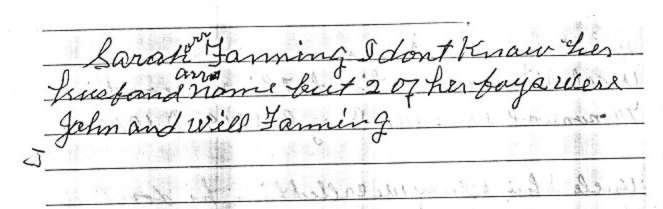 Sarah Fanning I dont Know her
husband name but 2 of her boys were
John and Will Fanning